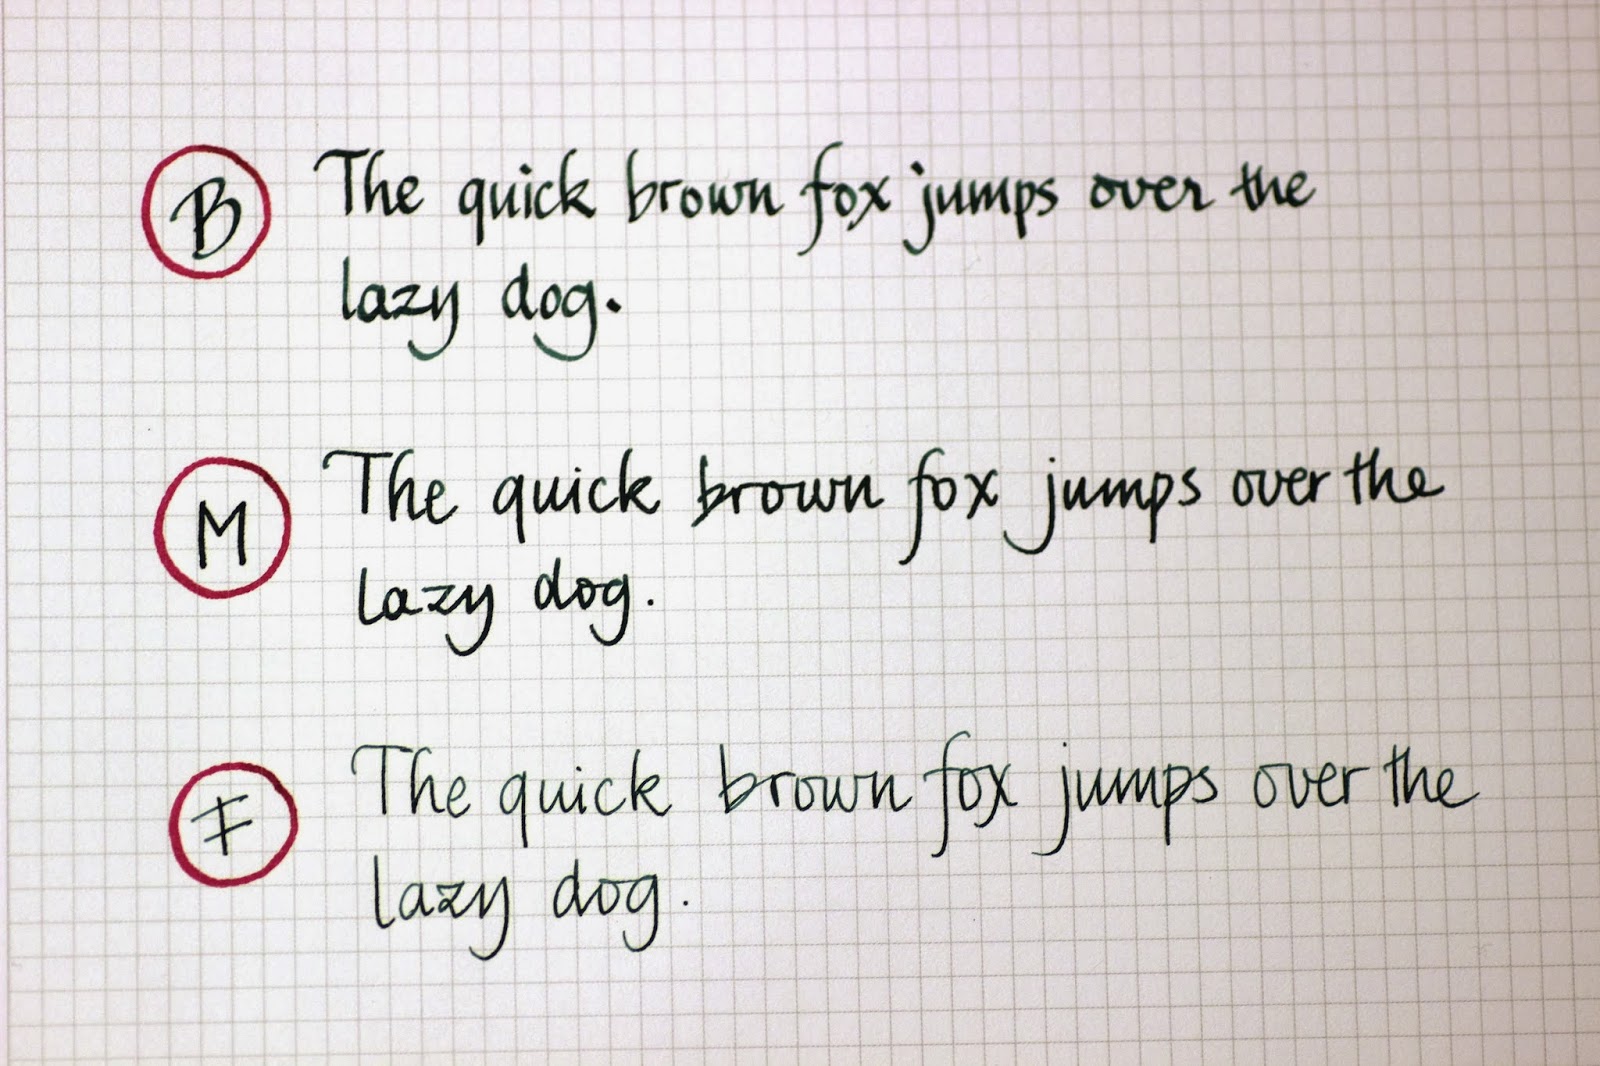 B The quick brown fox jumps over the
lazy dog.
M The quick brown fox jumps over the
lazy dog.
F The quick brown fox jumps over the
lazy dog.